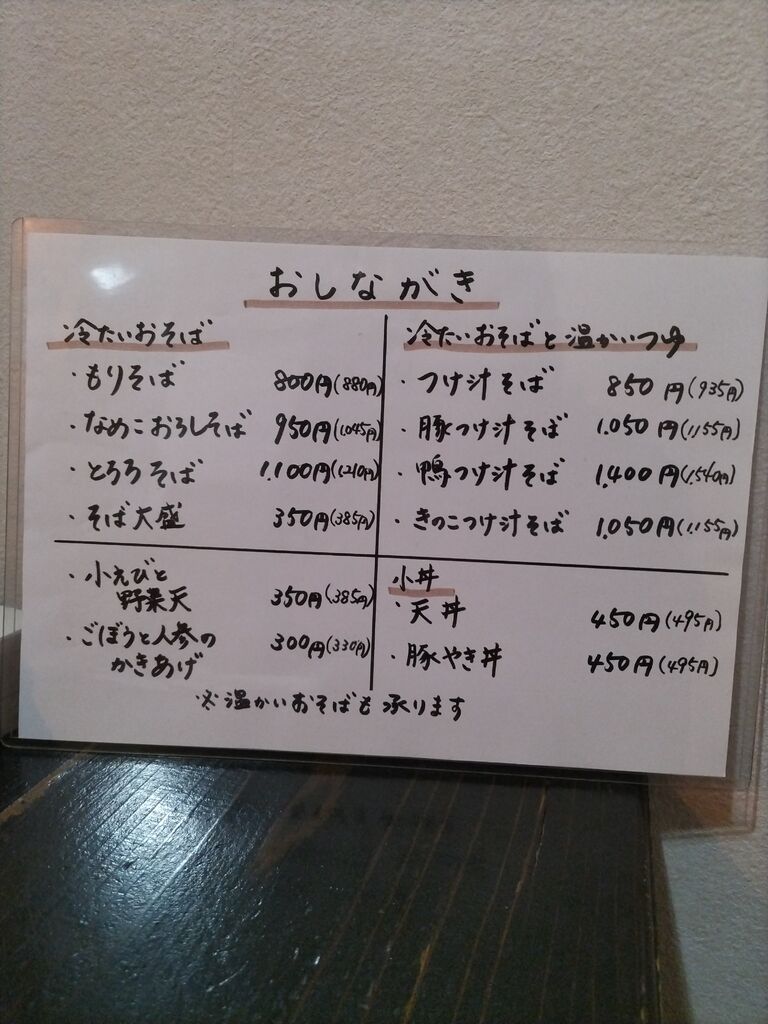 おしながき
冷たいおそば
・もりそば 800円(880円)
・なめこおろしそば 950円(1,045円)
・とろろそば 1,100円(1,210円)
・そば大盛 350円(385円)
冷たいおそばと温かいつゆ
・つけ汁そば 850円(935円)
・豚つけ汁そば 1,050円(1,155円)
・鴨つけ汁そば 1,400円(1,540円)
・きのこつけ汁そば 1,050円(1,155円)
・小えびと
野菜天 350円(385円)
・ごぼうと人参の
かきあげ 300円(330円)
小丼
・天丼 450円(495円)
・豚やき丼 450円(495円)
※温かいおそばも承ります